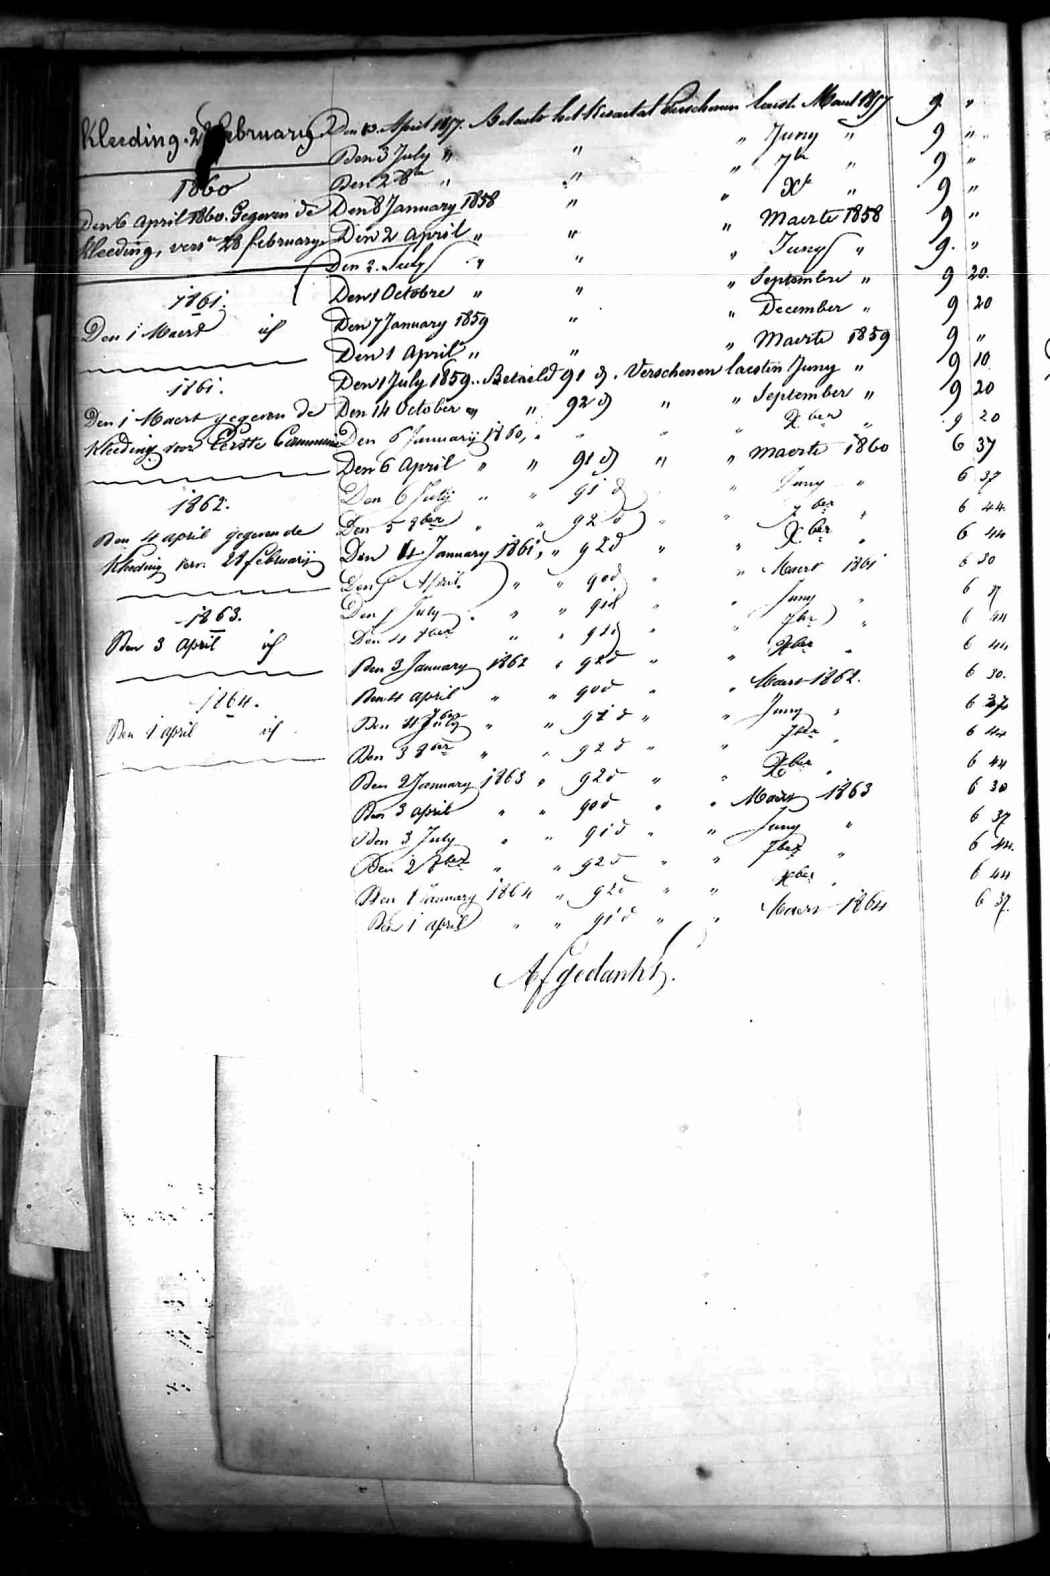 Kleeding. 28 february
1860
Den 6 April 1860. Gegeven de
kleeding, vers.n 28 february
1861.
Den 1 Maert id
1861.
Den 1 Maert gegeven de
kleeding voor Eerste Communie
1862.
Den 4 april gegeven de
kleeding vers. 28 februarij
1863.
Den 3 april id
1864.
Den 1 april id
Den 10 April 1857. Betaelt het Kwartal verschenen laest Maert 1857 9 "
Den 3 July " " " Juny " 9 "
Den 2 8br " " " 7br " 9 "
Den 8 January 1858 " " Xbr " 9 "
Den 2 April " " " Maerte 1858 9 "
Den 2 July " " " Juny " 9 "
Den 1 Octobre " " " Septembre " 9 20
Den 7 January 1859 " " December " 9 20
Den 1 April " " " Maerte 1859 9 "
Den 1 July 1859. Betaeld 91 d. Verschenen laesten Juny " 9 10
Den 14 October " " 92 d " " September " 9 20
Den 6 Januarij 1860, " " " " Xber " 9 20
Den 6 April " " 91 d " " maerte 1860 6 37
Den 6 July " " 91 d " Juny " 6 37
Den 5 8ber " " 92 d " 7ber " 6 44
Den 4 January 1861, " 92 d " " Xber " 6 44
Den 5 April " " 90 d " " Maert 1861 6 30
Den 5 July " " 91 d " " Juny " 6 37
Den 4 8ber " " 92 d " " 7ber " 6 44
Den 3 January 1862 " 92 d " " Xber " 6 44
Den 4 april " " 90 d " Maert 1862. 6 30.
Den 4 July " " 91 d " " Juny " 6 37
Den 3 8ber " " 92 d " " 7ber 6 44
Den 2 January 1863 " 92 d " " Xber " 6 44
Den 3 april " " 90 d " " Maert 1863 6 30
Den 3 July " " 91 d " " Juny " 6 37
Den 2 8ber " " 92 d " " 7ber " 6 44.
Den 1 January 1864 " 92 d " " Xber " 6 44
Den 1 april " " 91 d " " Maert 1864 6 37.
Afgedankt.